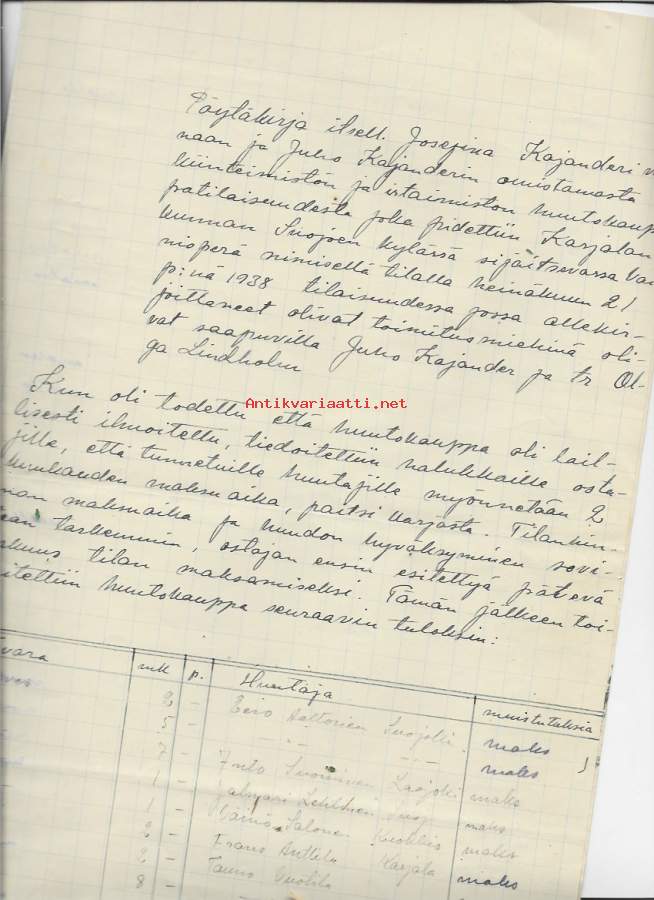 Pöytäkirja itsell. Josefina Kajanderi v
naan ja Juho Kajanderin omistamasta
kiinteimistön ja irtaimiston huutokaup
patilaisuudesta joka pidettiin Karjalan
kunnan Suojoen kylässä sijaitsevassa Vai
nioperä nimisellä tilalla heinäkuun 21
p:nä 1938 tilaisuudessa jossa allekir-
joittaneet olivat toimitusmiehinä oli-
vat saapuvilla Juho Kajander ja tr Ol-
ga Lindholm
Antikvariaatti.net
Kun oli todettu että huutokauppa oli lail-
lisesti ilmoitettu, tiedoitettiin halukkaille osta-
jille, että tunnetuille huutajille myönnetään 2
kuukauden maksuaika, paitsi karjasta. Tilankin-
nan maksuaika ja huudon hyväksyminen sovi-
taan tarkemmin, ostajan ensin esitettyä pätevä
vakuus tilan maksamiseksi. Tämän jälkeen toi-
mitettiin huutokauppa seuraavin tuloksin:
vara mk p. Huutaja muistutuksia
8 - Eero Aaltorien Suojoki maks
5 - - " - - " - maks
7 - Frito Suominen Laajoki maks
1 - Jalmari Lehtinen Suoj maks
1 - Väinö Salonen maks
2 - Frans Anttila Karjala maks
2 - Tauno
8 -